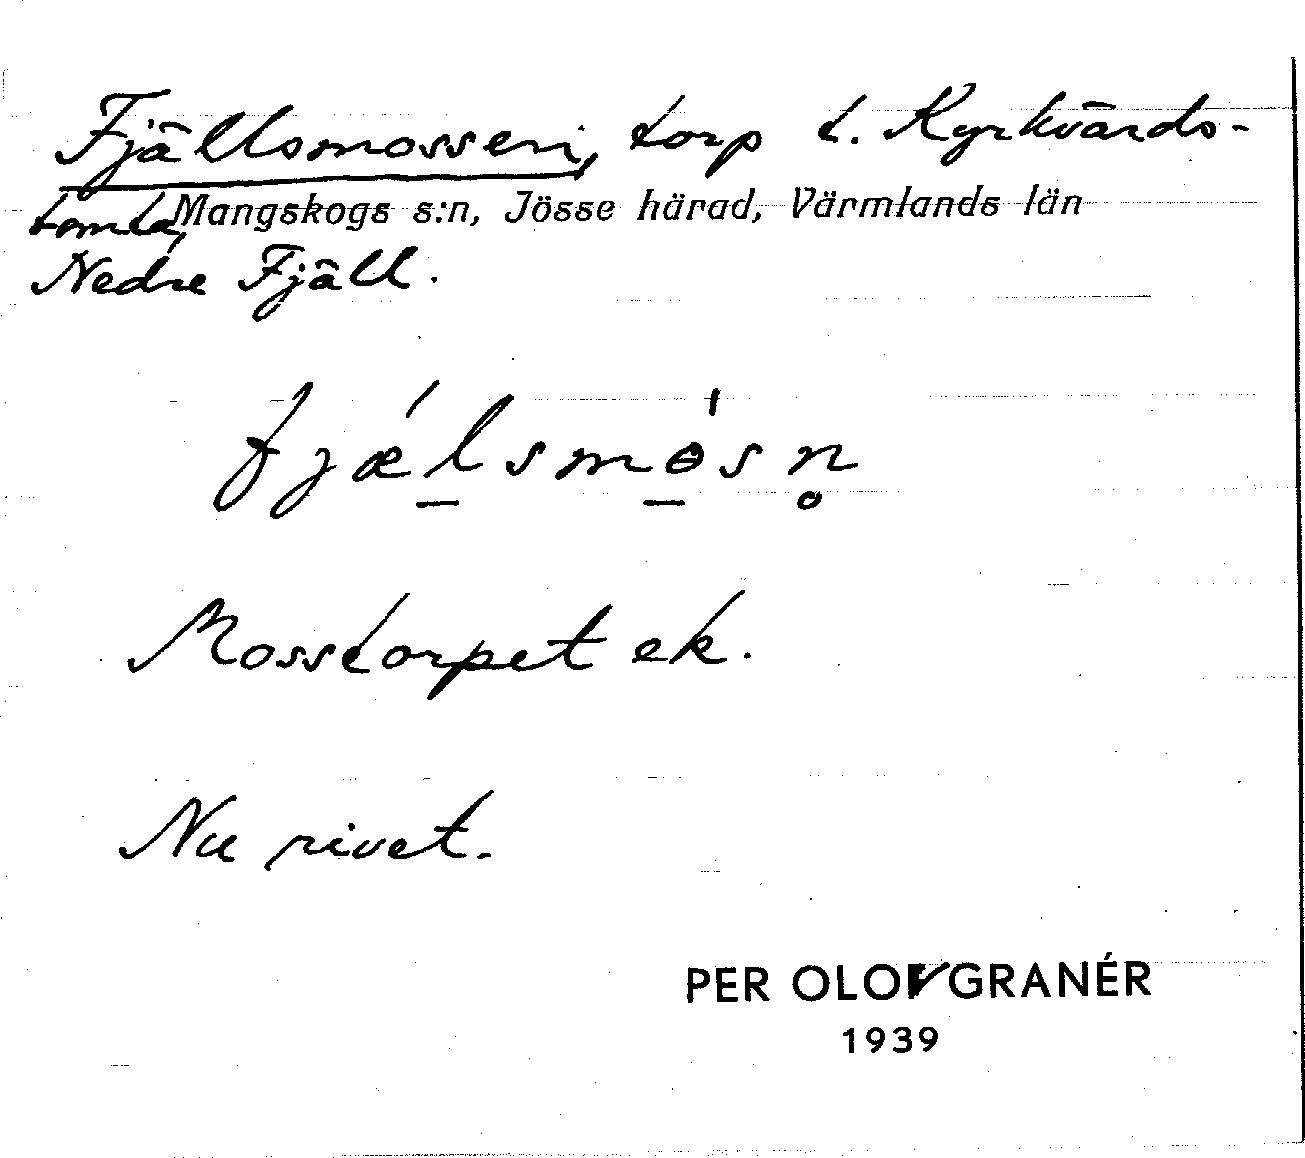 Fjällsmossen, torp t. Kyrkvärds-
tomta,
Mangskogs s:n, Jösse härad, Värmlands län
Nedre Fjäll.
fjæ´l̠smɵ̠'sn̥
Mosstorpet ek.
Nu rivet.
PER OLOV GRANÉR
1939